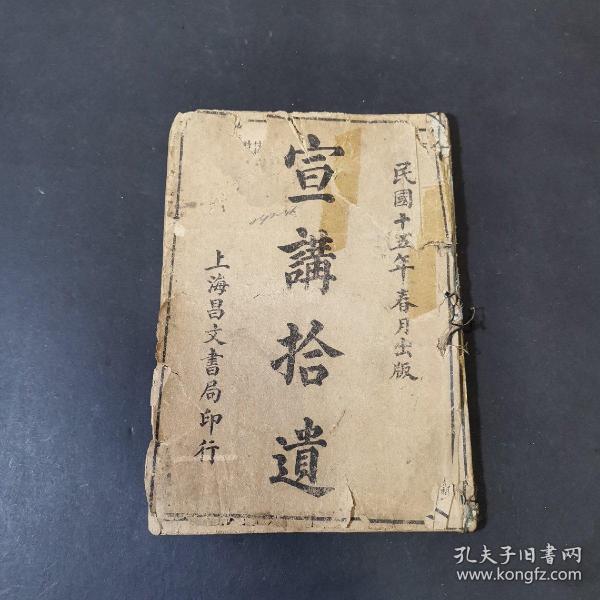 民國十五年春月出版
宣講拾遺
上海昌文書局印行
孔夫子旧书网
www.kongfz.com